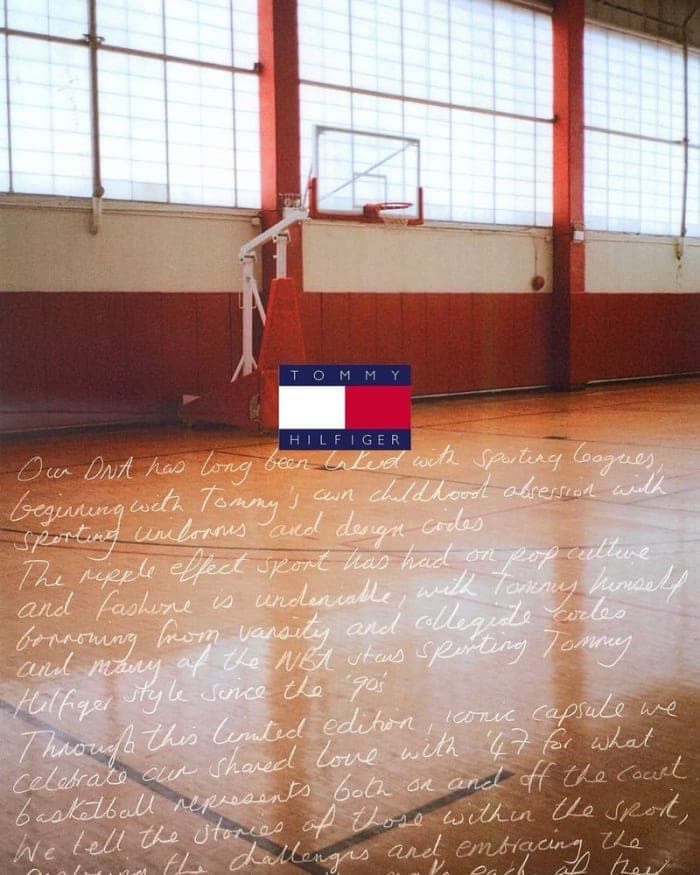 TOMMY
HILFIGER
Our DNA has long been linked with sporting leagues,
beginning with Tommy's own childhood obsession with
sporting uniforms and design codes
The ripple effect sport has had on pop culture
and fashion is undeniable, with Tommy himself
borrowing from varsity and collegiate codes
and many of the NBA stars sporting Tommy
Hilfiger style since the '90s
Through this limited edition, iconic capsule we
celebrate our shared love with '47 for what
basketball represents both on and off the court
We tell the stories of those within the sport,
the challenges and embracing the
each of their